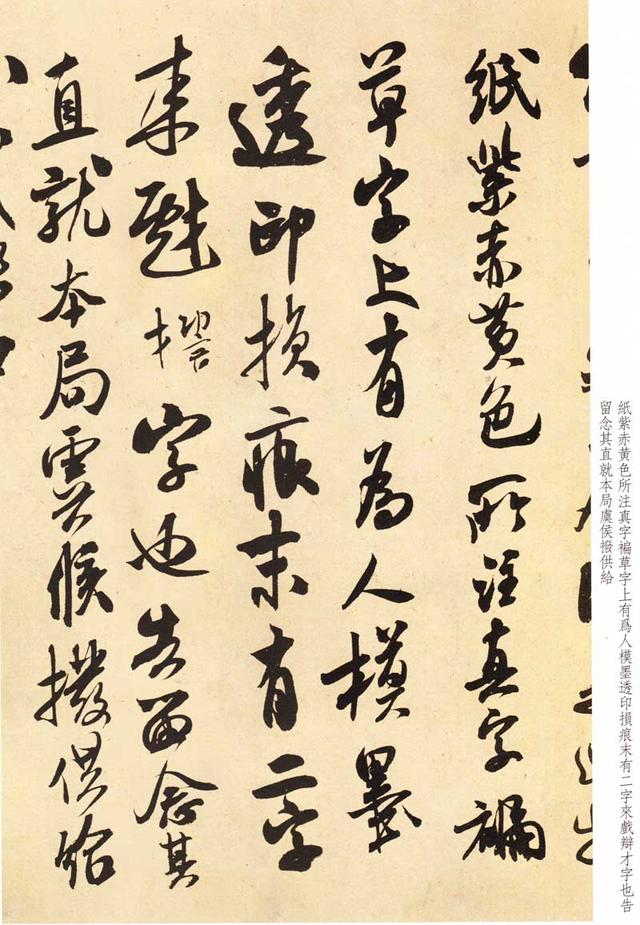 紙紫赤黄色所注真字褊草字上有爲人模墨透印損痕末有二字來戲辯才字也告
留念其直就本局虞侯撥供給
紙紫赤黄色所注真字褊
草字上有為人模墨
透印損痕末有二字
来字也告留念其
直就本局虞候撥供給